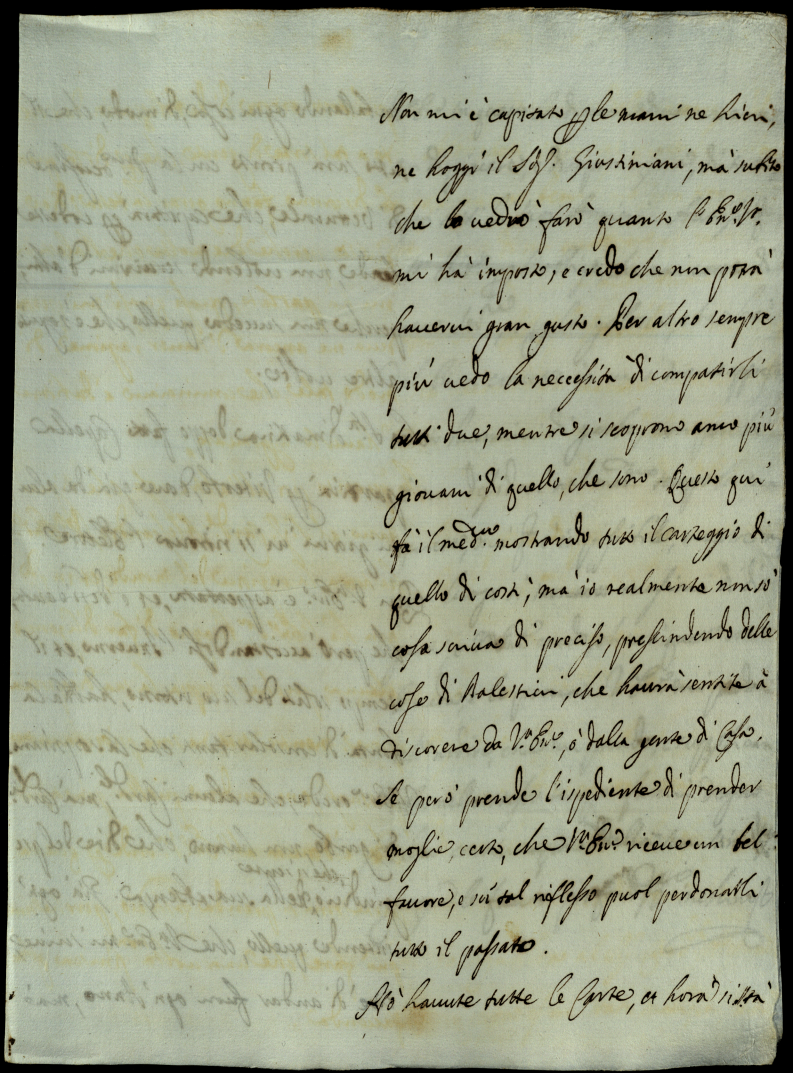 Non mi è capitato p le mani ne hieri,
ne hoggi il Sig.r Giustiniani, mà subito
che lo vedrò farò quanto l' Em.o Sr.
mi hà imposto, e credo che non potrà
havervi gran gusto. Per altro sempre
più vedo la necessità di compatirli
tutti due, mentre si scoprono anco più
giovani di quello, che sono. Questo qui
fà il med.mo mostrando tutto il carteggio di
quello di costì, mà io realmente non sò
cosa scriva di preciso, prescindendo delle
cose di Balestrieri, che havrà sentite à
discorere da V.a Em.a, ò dalla gente di Casa.
Se però prende l'ispediente di prender
moglie, certo, che V.a Em.a riceve un bel
favore, e sù tal riflesso puol perdonarli
tutto il passato.
Hò havute tutte le Carte, et hora si stà